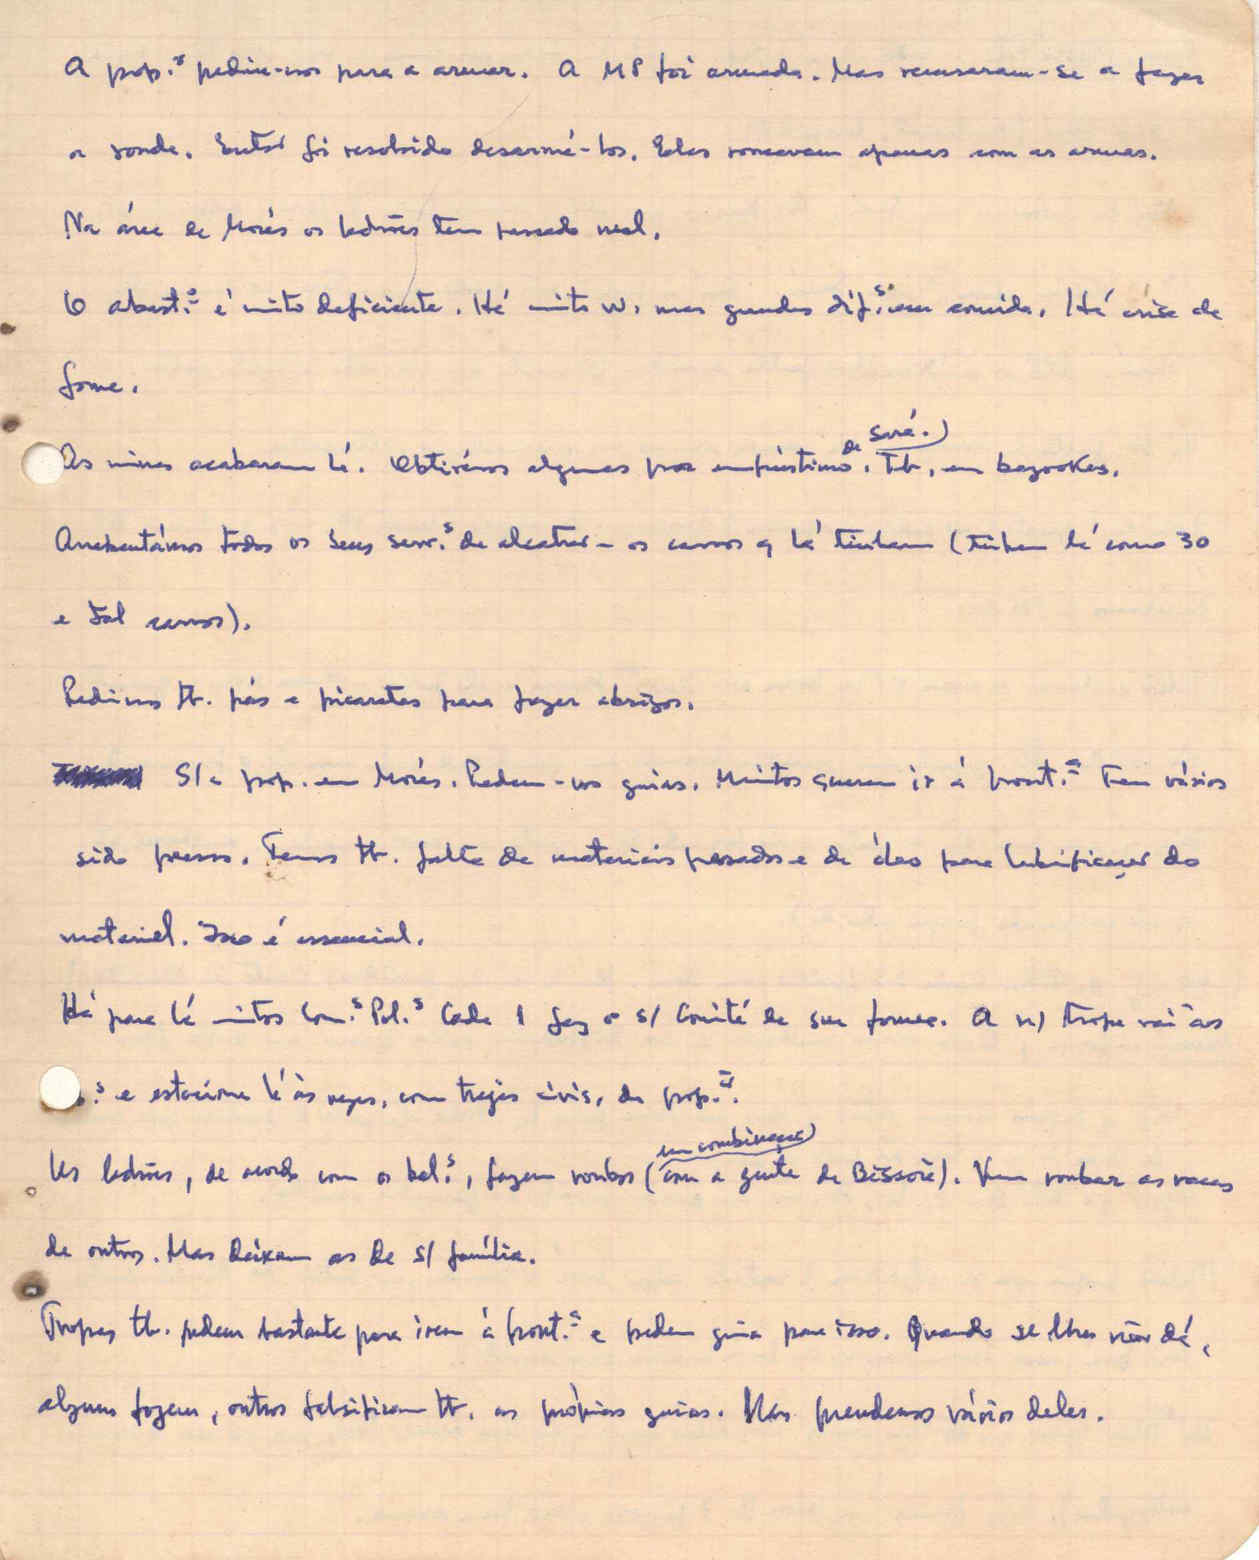 A pop.ª pediu-nos para a armar. A MP foi armada. Mas recusaram-se a fazer
a ronda. Então foi resolvido desarmá-los. Eles roncavam apenas com as armas.
Na área de Morés os ladrões tem passado mal.
O abast.º é muito deficiente. Há muito w. mas grandes dif.s em comida. Há crise de
fome.
As minas acabaram lá. Obtivémos algumas por empréstimo de Sará.) Tb. em bazookas.
Arrebentámos todos os seus serv.s de alcatrar - os carros q lá tinham (tinham lá como 30
e tal carros).
Pedimos tb. pás e picaretas para fazer abrigos.
S/ a pop. em Morés. Pedem-nos guias. Muitos querem ir à front.ª Tem vários
sido presos. Temos tb. falta de materiais pesados e de óleo para lubrificação do
material. Isso é essencial.
Há para lá muitos Com.s Pol.s Cada 1 faz o s/ Comité de sua forma. A n/ tropa vai às
.s e estaciona lá às vezes, com trajes civis, da pop.ª.
Us ladrões, de acordo com os bal.s, fazem roubos (em combinação com a gente de Bissorã). Vem roubar as vacas
de outros. Mas deixam as de s/ família.
Tropas tb. pedem bastante para irem à front.ª e pedem guia para isso. Quando se lhes não dá,
alguns fogem, outros falsificam tb. as próprias guias. Mas prendemos vários deles.